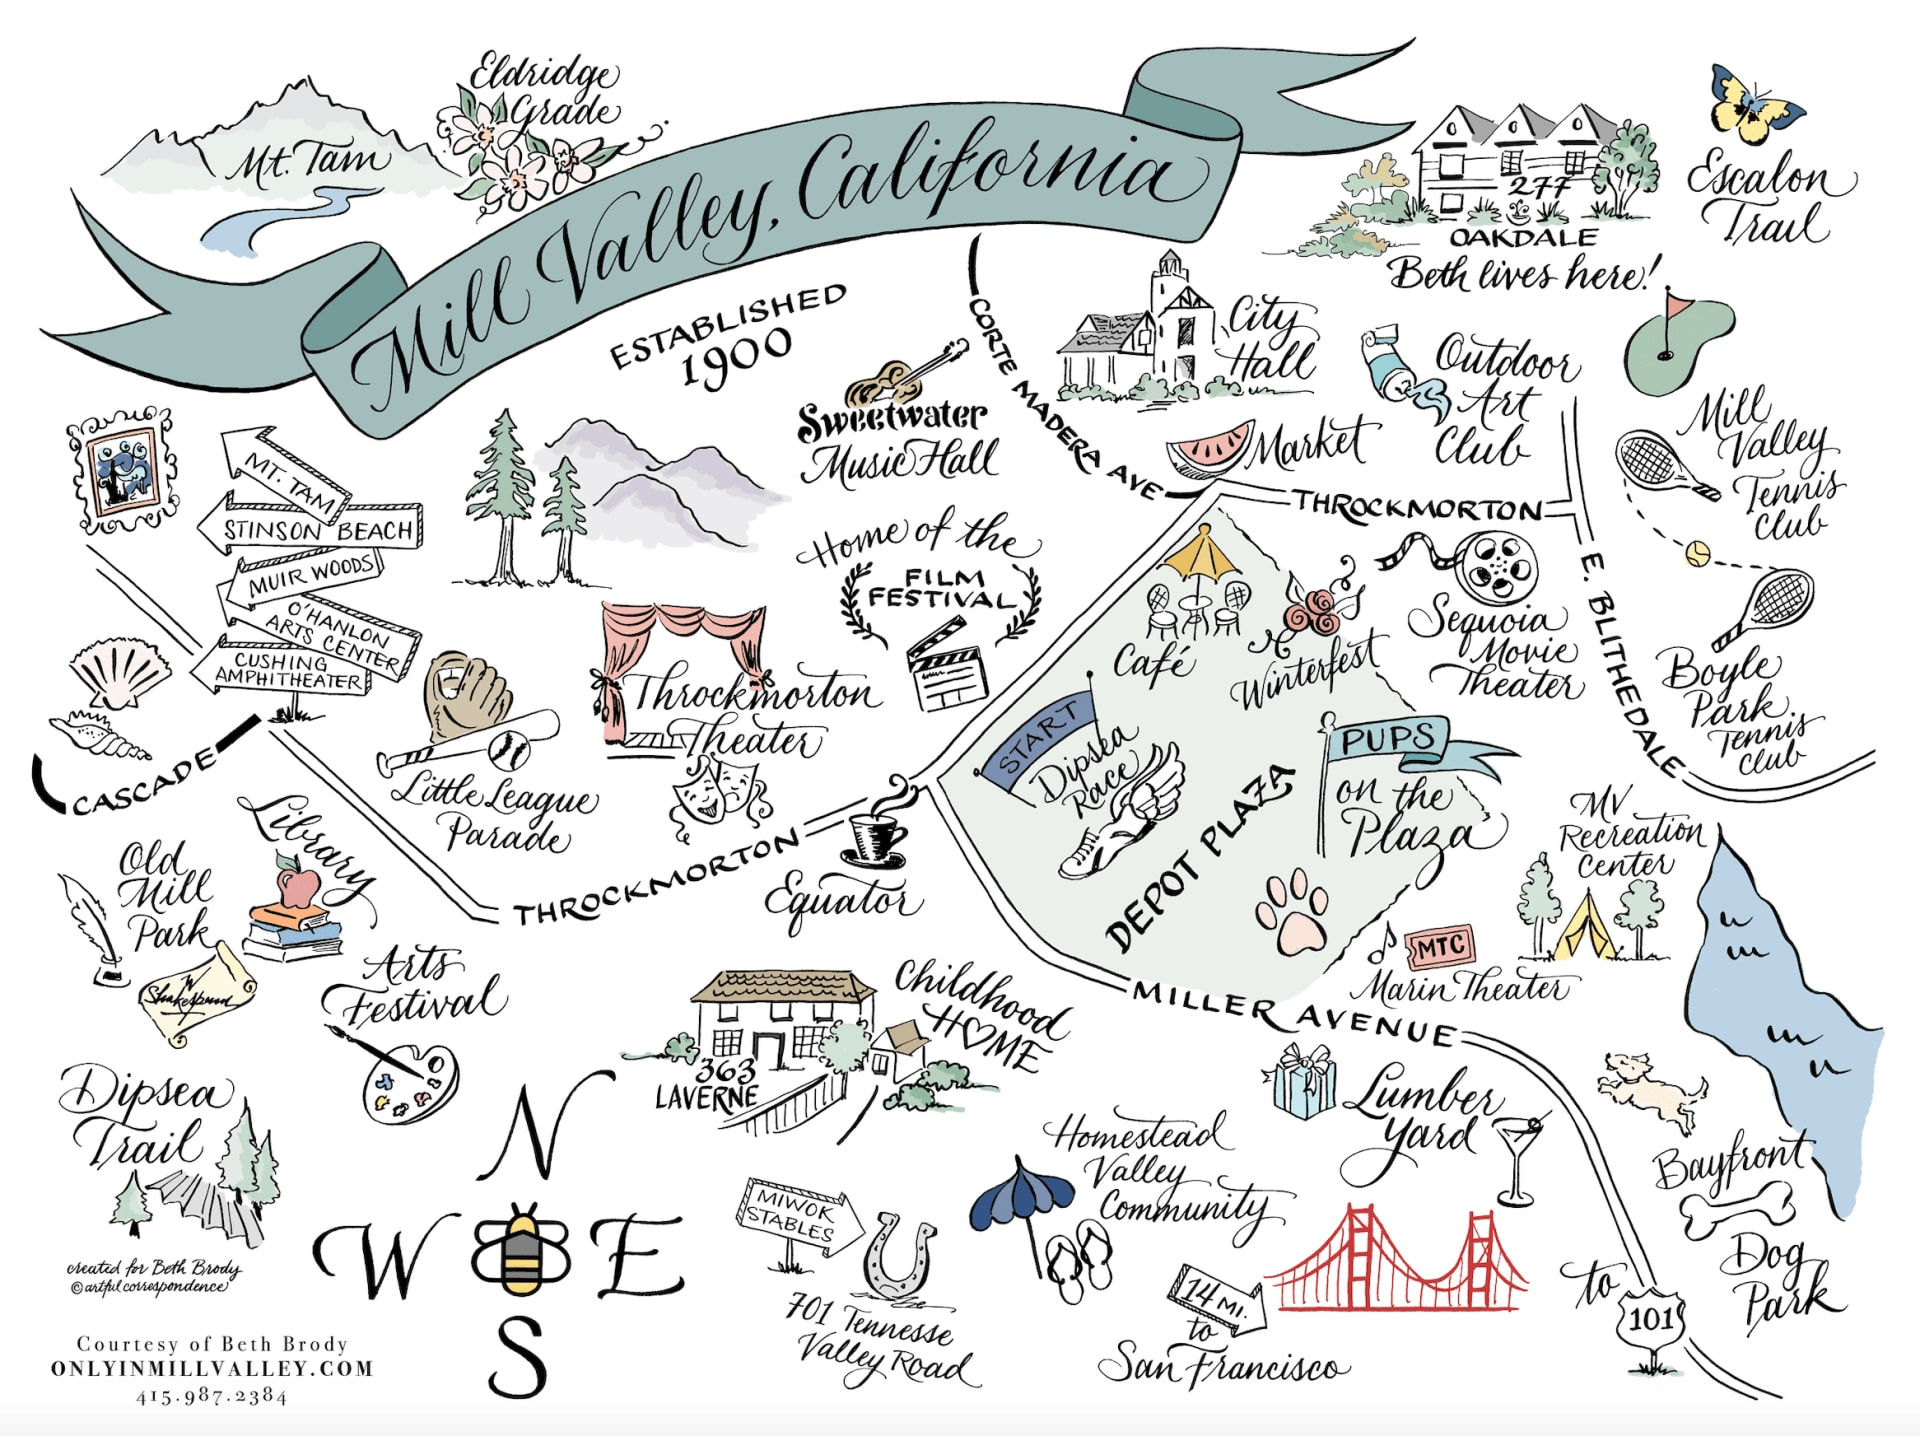 Eldridge
Grade
Mt. Tam
Mill Valley, California
ESTABLISHED
1900
277
OAKDALE
Beth lives here!
Escalon
Trail
CORTE MADERA AVE
City
Hall
Outdoor
Art
Club
Sweetwater
Music Hall
Market
Mill
Valley
Tennis
Club
MT. TAM
STINSON BEACH
MUIR WOODS
O'HANLON
ARTS CENTER
CUSHING
AMPHITHEATER
THROCKMORTON
E. BLITHEDALE
Home of the
FILM
FESTIVAL
Café
Winterfest
Sequoia
Movie
Theater
Boyle
Park
Tennis
Club
Throckmorton
Theater
Little League
Parade
CASCADE
START
Dipsea
Race
PUPS
on the
Plaza
DEPOT PLAZA
MV
Recreation
Center
Library
Old
Mill
Park
Shakespeare
THROCKMORTON
Equator
MTC
Marin Theater
MILLER AVENUE
Arts
Festival
Childhood
HOME
363
LAVERNE
Dipsea
Trail
Lumber
Yard
Homestead
Valley
Community
Bayfront
Dog
Park
N
W
E
S
MIWOK
STABLES
701 Tennesse
Valley Road
14 MI.
to
San Francisco
to
101
created for Beth Brody
© artful correspondence
Courtesy of Beth Brody
ONLYINMILLVALLEY.COM
415.987.2384